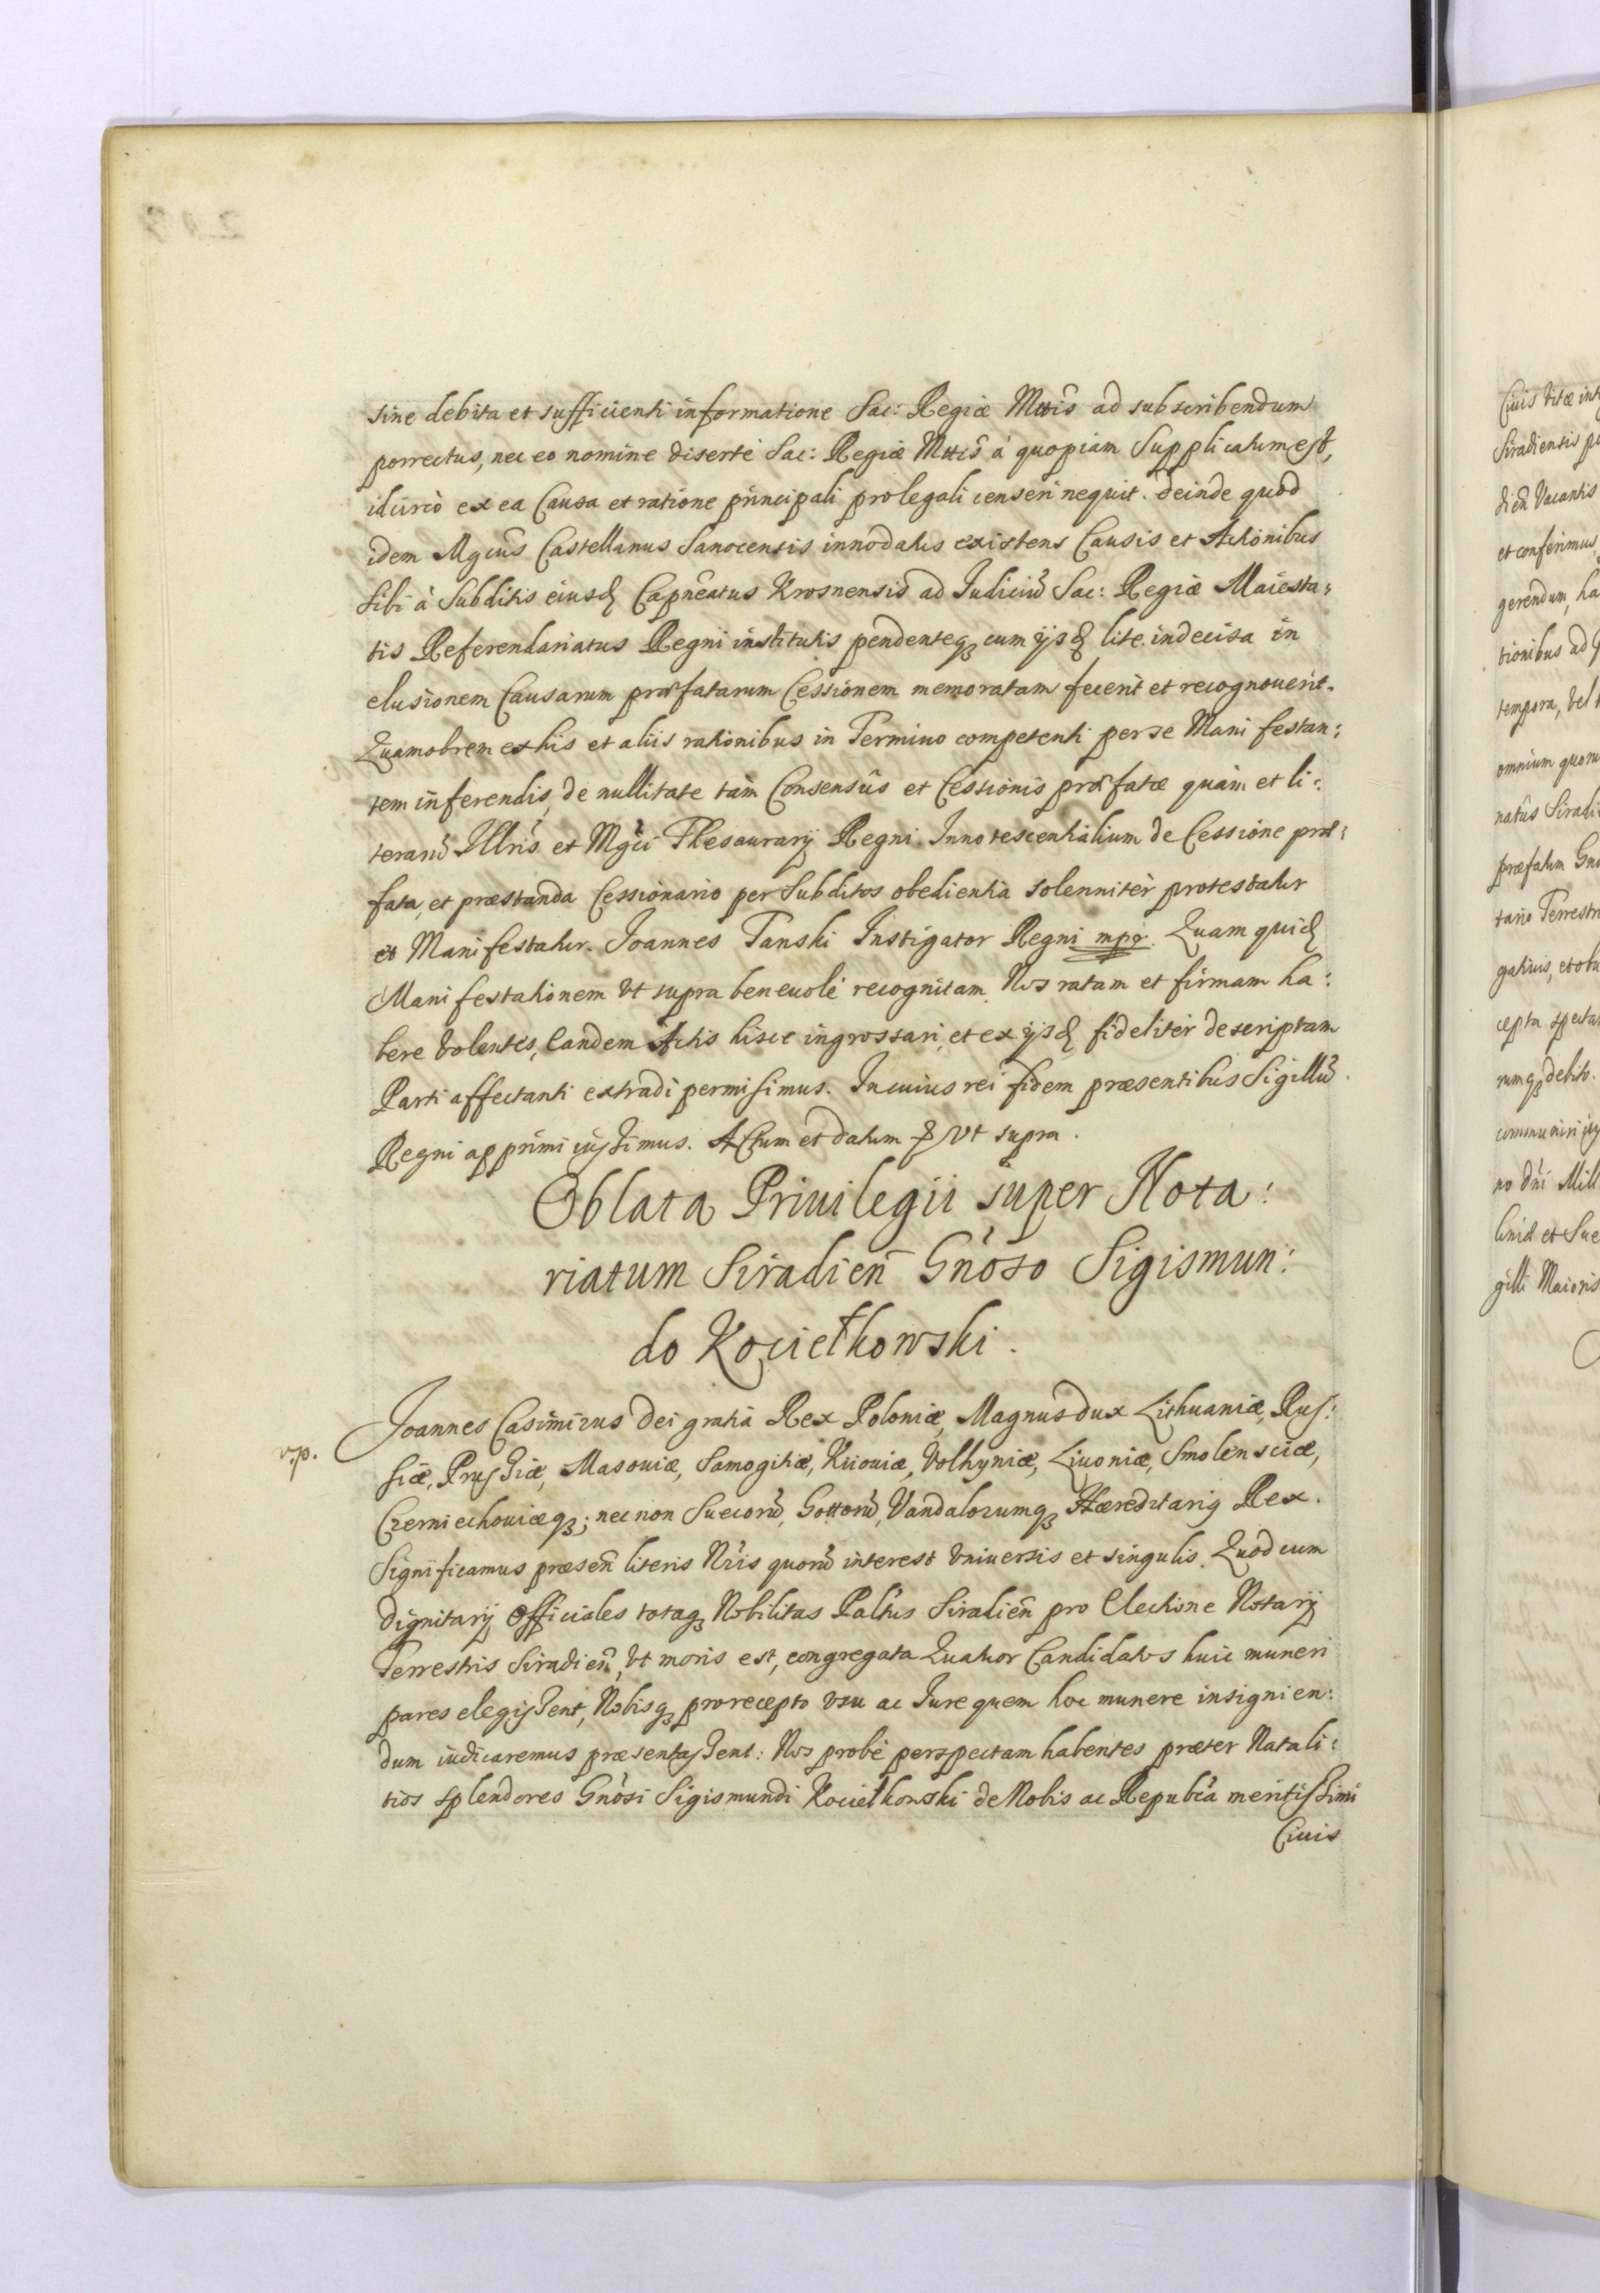 sine debita et sufficienti informatione Sac: Regiæ Mttis ad subscribendum
porrectus, nec eo nomine disertè Sac: Regiæ Mttis à quopiam Supplicatum est,
idcircò ex ea Causa et ratione principali pro legali censeri nequit. deinde quòd
idem Mgcus Castellanus Sanocensis innodatus existens Causis et Actionibus
sibi à Subditis eiusd Capneatus Krosnensis ad Iudiciũ Sac: Regiæ Maiesta:
tis Referendariatus Regni institutis pendenteq cum ijsd lite indecisa in
elusionem Causarum præfatarum Cessionem memoratam fecerit et recognouerit.
Quamobrem ex his et aliis rationibus in Termino competenti per se Manifestan:
tem inferendis, de nullitate tàm Consensûs et Cessionis præfatæ quàm et li:
terarũ Illris et Mgci Thesaurarij Regni Innotescentialium de Cessione præ:
fata, et præstanda Cessionario per Subditos obedientia solenniter protestatur
et Manifestatur. Joannes Tanski Instigator Regni mpr. Quam quid
Manifestationem vt supra beneuolè recognitam, Nos ratam et firmam ha:
bere volentes, Eandem Actis hisce ingrossari, et ex ijsd fideliter descriptam
Parti affectanti extradi permisimus. In cuius rei fidem præsentibus Sigillũ
Regni apprimi iussimus. Actum et datum & vt supra.
Oblata Priuilegii super Nota:
riatum Siradien̄ Gnoso Sigismun:
do Kociełkowski.
v.p.
Joannes Casimirus Dei gratia Rex Poloniæ, Magnus dux Lithuaniæ, Rus:
siæ, Prussiæ, Masouiæ, Samogitiæ, Kiiouiæ, Volhyniæ, Liuoniæ, Smolensciæ,
Czerniechouiæq; nec non Suecorũ, Gottorũ, Vandalorumq Hæreditarig Rex.
Significamus præsen̄ literis Nris quorũ interest vniuersis et singulis. Quod cum
dignitarij Officiales totaq Nobilitas Paltus Siradien̄ pro Electione Notarij
Terrestris Siradien̄, vt moris est, congregata Quatuor Candidatos huic muneri
pares elegissent, Nobisq pro recepto vsu ac Iure quem hoc munere insignien:
dum iudicaremus præsentassent: Nos probè perspectam habentes præter Natali:
tios splendores Gnosi Sigismundi Kociełkowski de Nobis ac Repubca meritissimi
Ciuis